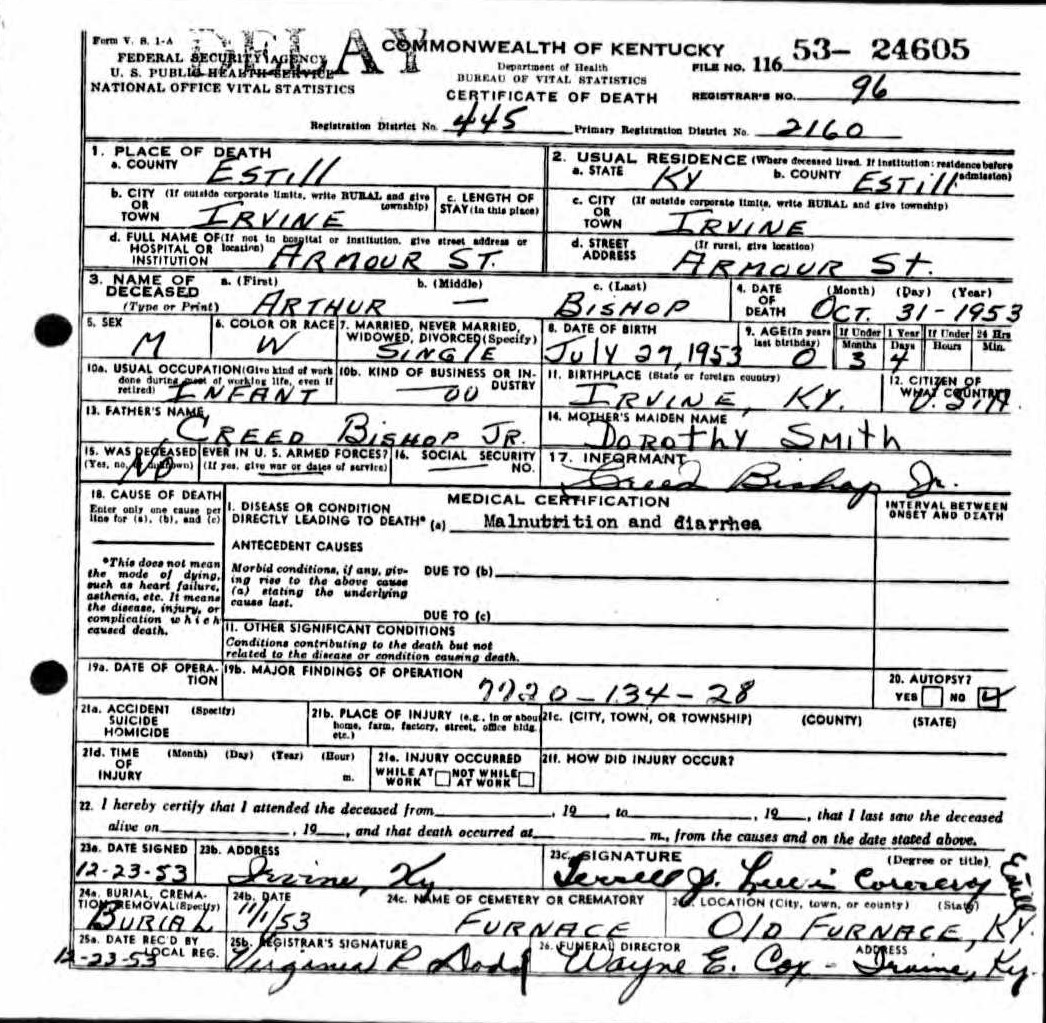 Form V. S. 1-A
DELAY
COMMONWEALTH OF KENTUCKY
FILE NO. 116 53- 24605
FEDERAL SECURITY AGENCY
U. S. PUBLIC HEALTH SERVICE
NATIONAL OFFICE VITAL STATISTICS
Department of Health
BUREAU OF VITAL STATISTICS
CERTIFICATE OF DEATH
REGISTRAR'S NO. 96
Registration District No. 445 Primary Registration District No. 2160
1. PLACE OF DEATH
a. COUNTY Estill
2. USUAL RESIDENCE (Where deceased lived. If institution: residence before admission)
a. STATE Ky b. COUNTY Estill
b. CITY (If outside corporate limits, write RURAL and give township)
OR TOWN IRVINE
c. LENGTH OF STAY (in this place)
c. CITY (If outside corporate limits, write RURAL and give township)
OR TOWN IRVINE
d. FULL NAME OF (If not in hospital or institution, give street address or location)
HOSPITAL OR INSTITUTION ARMOUR ST.
d. STREET ADDRESS (If rural, give location)
ARMOUR St.
3. NAME OF DECEASED (Type or Print)
a. (First) b. (Middle) c. (Last)
ARTHUR — BISHOP
4. DATE OF DEATH (Month) (Day) (Year)
OCT. 31-1953
5. SEX
M
6. COLOR OR RACE
W
7. MARRIED, NEVER MARRIED, WIDOWED, DIVORCED (Specify)
SINGLE
8. DATE OF BIRTH
July 27, 1953
9. AGE (In years last birthday) 0
If Under 1 Year Months 3 Days 4
If Under 24 Hrs Hours Min.
10a. USUAL OCCUPATION (Give kind of work done during most of working life, even if retired) INFANT
10b. KIND OF BUSINESS OR INDUSTRY
11. BIRTHPLACE (State or foreign country)
IRVINE, KY.
12. CITIZEN OF WHAT COUNTRY
U.S.A.
13. FATHER'S NAME
CREED BISHOP JR.
14. MOTHER'S MAIDEN NAME
DOROTHY SMITH
15. WAS DECEASED EVER IN U. S. ARMED FORCES?
(Yes, no, or unknown) (If yes, give war or dates of service)
NO
16. SOCIAL SECURITY NO.
17. INFORMANT
Creed Bishop Jr.
18. CAUSE OF DEATH
Enter only one cause per line for (a), (b), and (c)
MEDICAL CERTIFICATION
INTERVAL BETWEEN ONSET AND DEATH
I. DISEASE OR CONDITION
DIRECTLY LEADING TO DEATH* (a) Malnutrition and diarrhea
*This does not mean the mode of dying, such as heart failure, asthenia, etc. It means the disease, injury, or complication which caused death.
ANTECEDENT CAUSES
Morbid conditions, if any, giving rise to the above cause (a) stating the underlying cause last.
DUE TO (b)
DUE TO (c)
II. OTHER SIGNIFICANT CONDITIONS
Conditions contributing to the death but not related to the disease or condition causing death.
19a. DATE OF OPERATION
19b. MAJOR FINDINGS OF OPERATION
7720-134-28
20. AUTOPSY?
YES NO
21a. ACCIDENT SUICIDE HOMICIDE (Specify)
21b. PLACE OF INJURY (e.g., in or about home, farm, factory, street, office bldg. etc.)
21c. (CITY, TOWN, OR TOWNSHIP) (COUNTY) (STATE)
21d. TIME OF INJURY (Month) (Day) (Year) (Hour) m.
21e. INJURY OCCURRED
WHILE AT WORK NOT WHILE AT WORK
21f. HOW DID INJURY OCCUR?
22. I hereby certify that I attended the deceased from , 19 , to , 19 , that I last saw the deceased
alive on , 19 , and that death occurred at m., from the causes and on the date stated above.
23a. DATE SIGNED
12-23-53
23b. ADDRESS
Irvine, Ky
23c. SIGNATURE (Degree or title)
Terrell J. Lewis Coroner
24a. BURIAL, CREMATION REMOVAL (Specify)
BURIAL
24b. DATE
11/1/53
24c. NAME OF CEMETERY OR CREMATORY
FURNACE
24d. LOCATION (City, town, or county) (State)
OLD FURNACE, KY.
25a. DATE REC'D BY LOCAL REG.
12-23-53
25b. REGISTRAR'S SIGNATURE
Virginia R Dodd
26. FUNERAL DIRECTOR ADDRESS
Wayne E. Cox - Irvine, Ky.